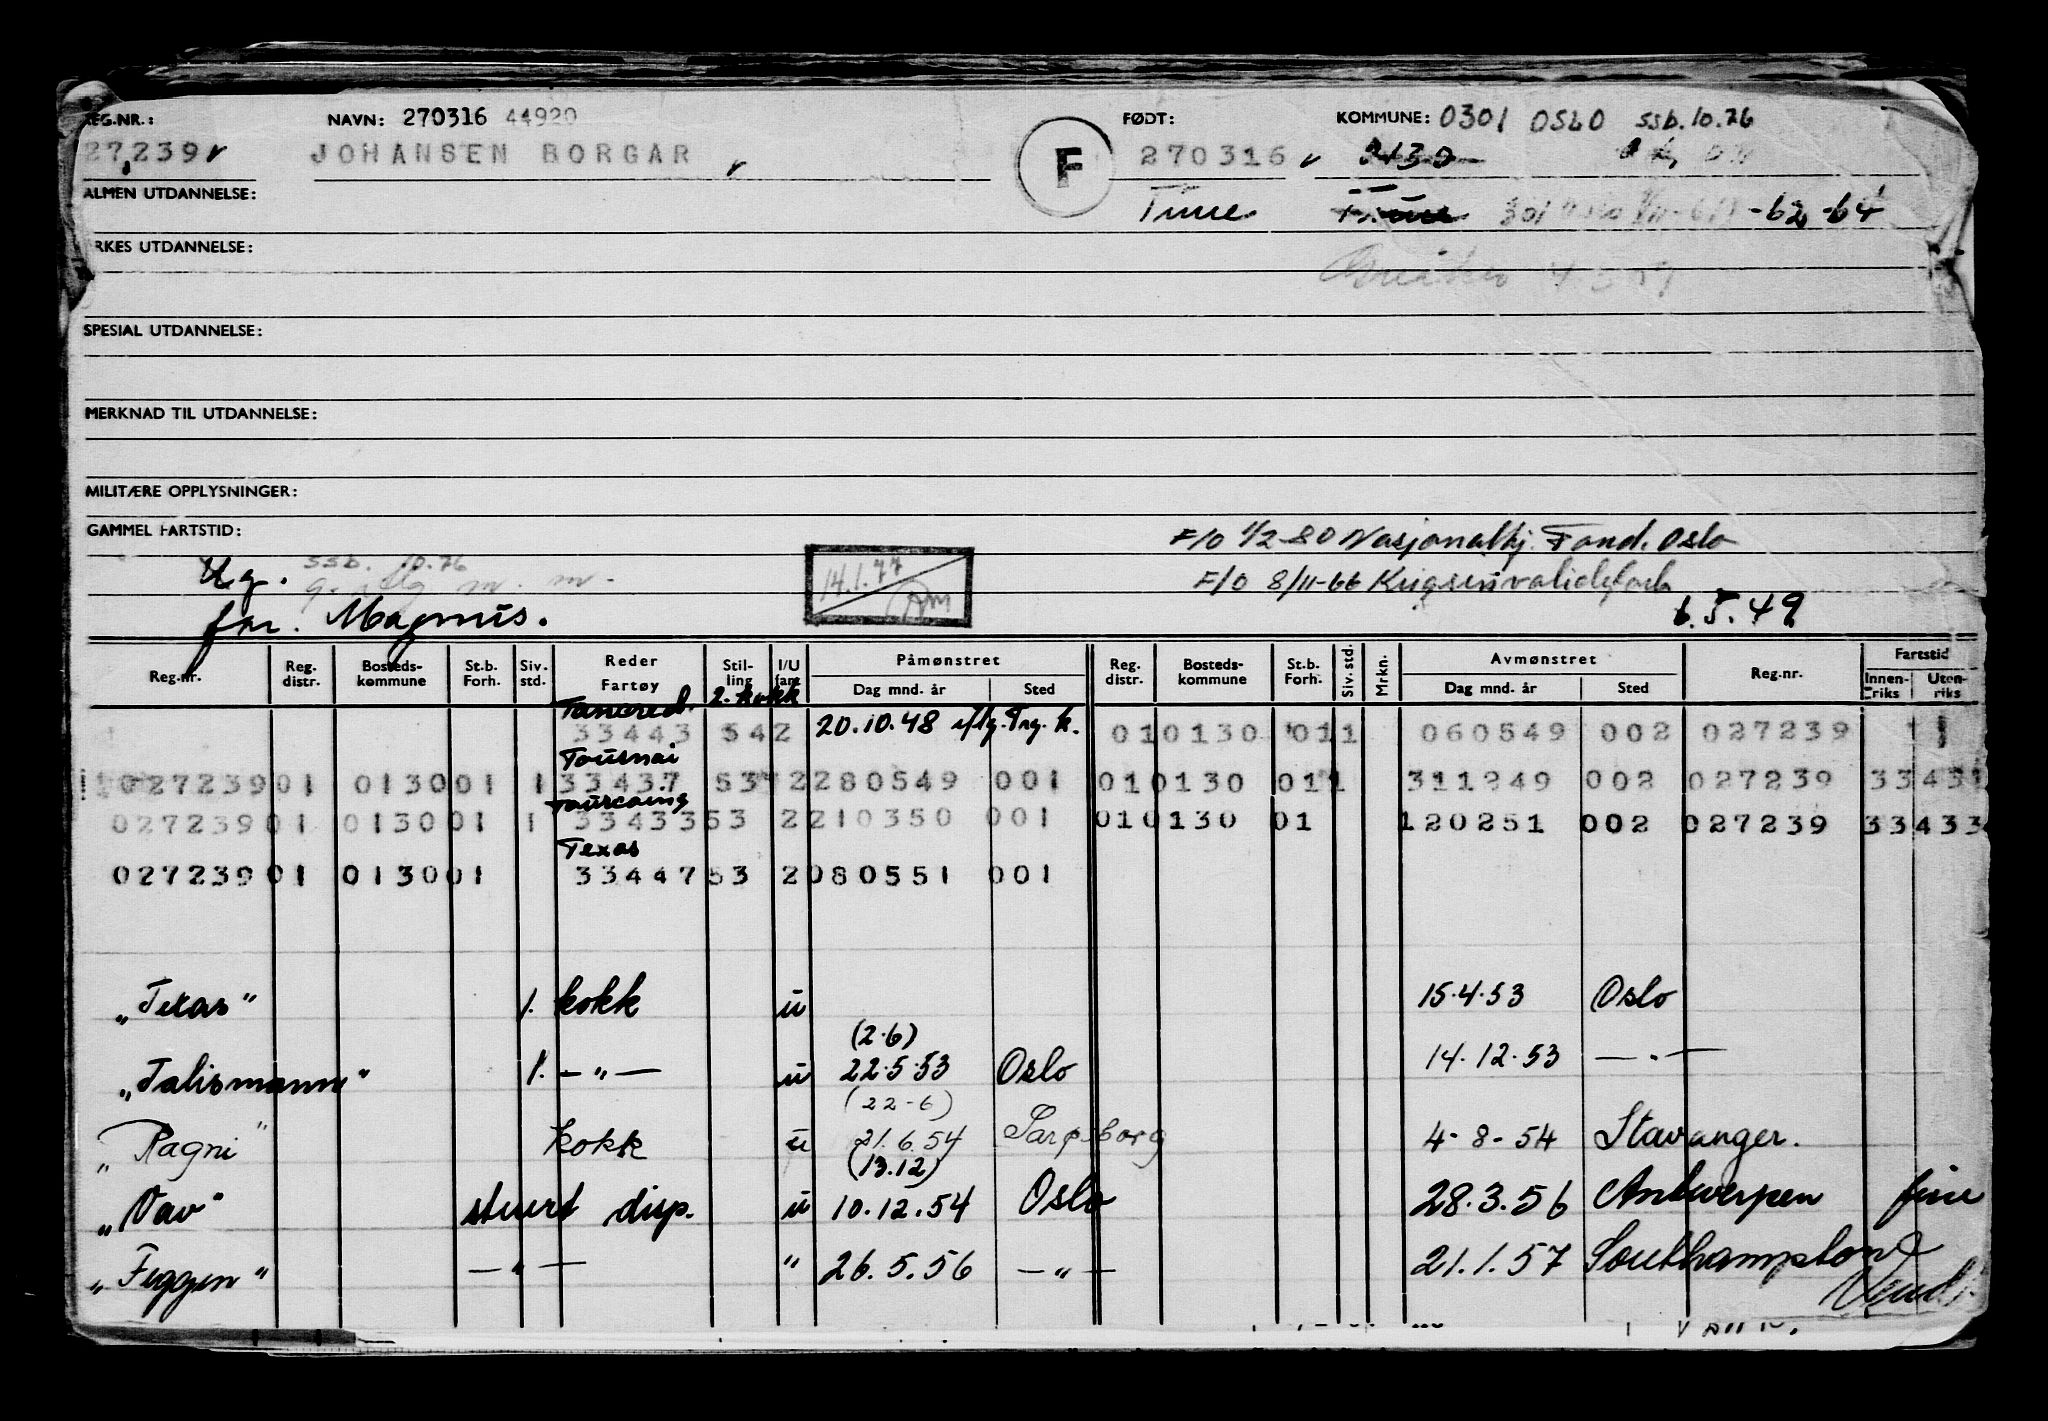 REG.NR.: NAVN: 270316 44920 FØDT: KOMMUNE: 0301 OSLO ssb. 10.76
27,239 JOHANSEN BORGAR F 270316 2130
ALMEN UTDANNELSE: Time Time 301 Oslo -62 -64
YRKES UTDANNELSE:
SPESIAL UTDANNELSE:
MERKNAD TIL UTDANNELSE:
MILITÆRE OPPLYSNINGER:
GAMMEL FARTSTID: F/O 1/2-80 Nasjonalhj. Fond. Oslo
Ug. ssb. 10.76 14.1.77 F/O 8/11-66 Krigsinvalide
far. Magnus. 6.5.49
Reg.nr. Reg. distr. Bosteds-kommune St.b. Forh. Siv. std. Reder Fartøy Stilling I/U fart Påmønstret Dag mnd. år Sted Reg. distr. Bosteds-kommune St.b. Forh. Siv. std. Mrkn. Avmønstret Dag mnd. år Sted Reg.nr. Fartstid Innen-riks Uten-riks
Tancred 2. kokk
33443 542 20.10.48 010130 011 060549 002 027239 1 1
Tournai
027239 01 0130 01 1 33437 53 2 280549 001 010130 011 311249 002 027239 33431
Tourcoing
027239 01 0130 01 1 33433 53 2 210350 001 010130 01 120251 002 027239 33433
Texas
027239 01 0130 01 33447 53 2 080551 001
"Texas" 1. kokk u 15.4.53 Oslo
(2.6)
"Talismann" 1. -"- u 22.5.53 Oslo 14.12.53 -"-
(22-6)
"Ragni" kokk u 21.6.54 Sarpsborg 4-8-54 Stavanger.
(13.12)
"Vav" stuert disp. u 10.12.54 Oslo 28.3.56 Antwerpen
"Feggen" -"- " 26.5.56 -"- 21.1.57 Southampton
Vend